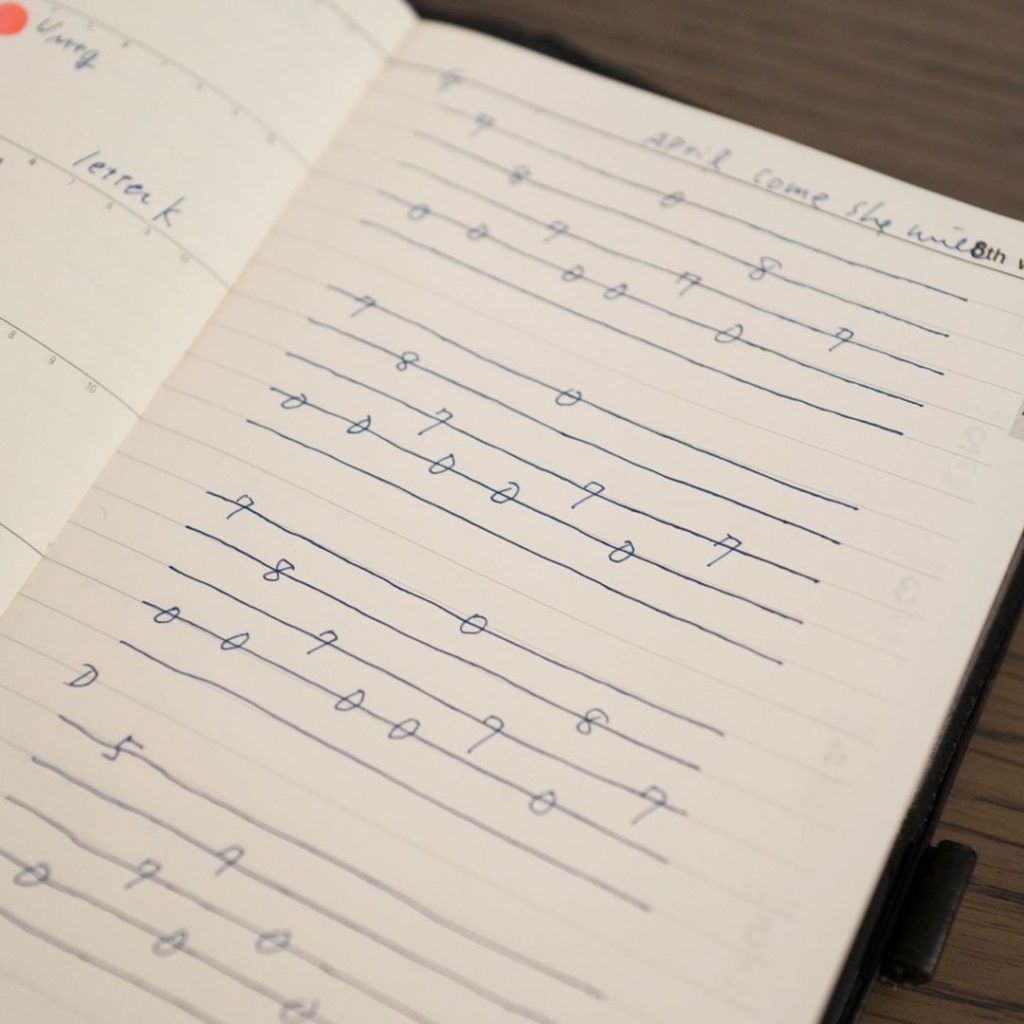 8 9 10
April come she will
8th
0
8 8
7 7 7
0 0 0 0 0
7 0
8
7 7 7
0 0 0 0 0
7 0
8 8
7 7 7
0 0 0 0 0
D
5
7
7 0
0 0 0